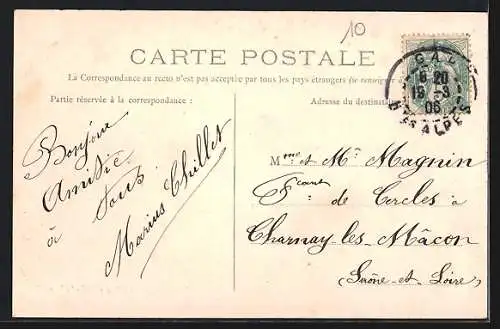 10
CARTE POSTALE
La Correspondance au recto n'est pas acceptée par tous les pays étrangers (se renseigner à
Partie réservée à la correspondance :
Adresse du destinataire
GAP
6 20
15 -3
06
Htes ALPES
Bonjour
Amitié
à tous
Marius
Mme et Mr Magnin
Fcant de Cercles à
Charnay-les-Mâcon
(Saône-et-Loire)